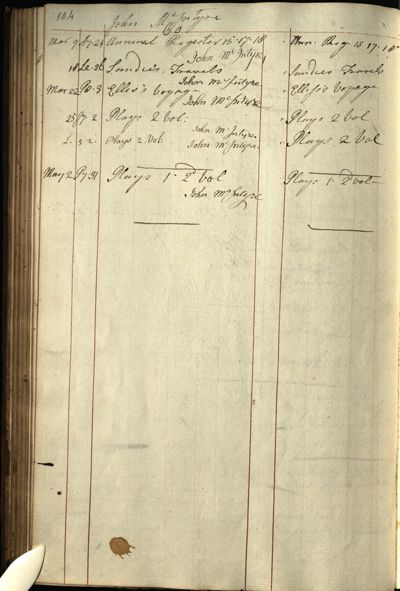 104
John McIntyre
Co
Mar 9 P7-24 Annual Register 15-17-18 Ann. Reg 15 17-18
John McIntyre
18 Sandies Travels Sandies Travels
John McIntyre
Mar 22 Ellis's Voyage Ellis's Voyage
John McIntyre
25 P7-2 Plays 2 Vol: Plays 2 Vol
John McIntyre
5 2 Plays 2 Vol: Plays 2 Vol
John McIntyre
May 2 P7-31 Plays 1-2d Vol Plays 1-2d Vol
John McIntyre